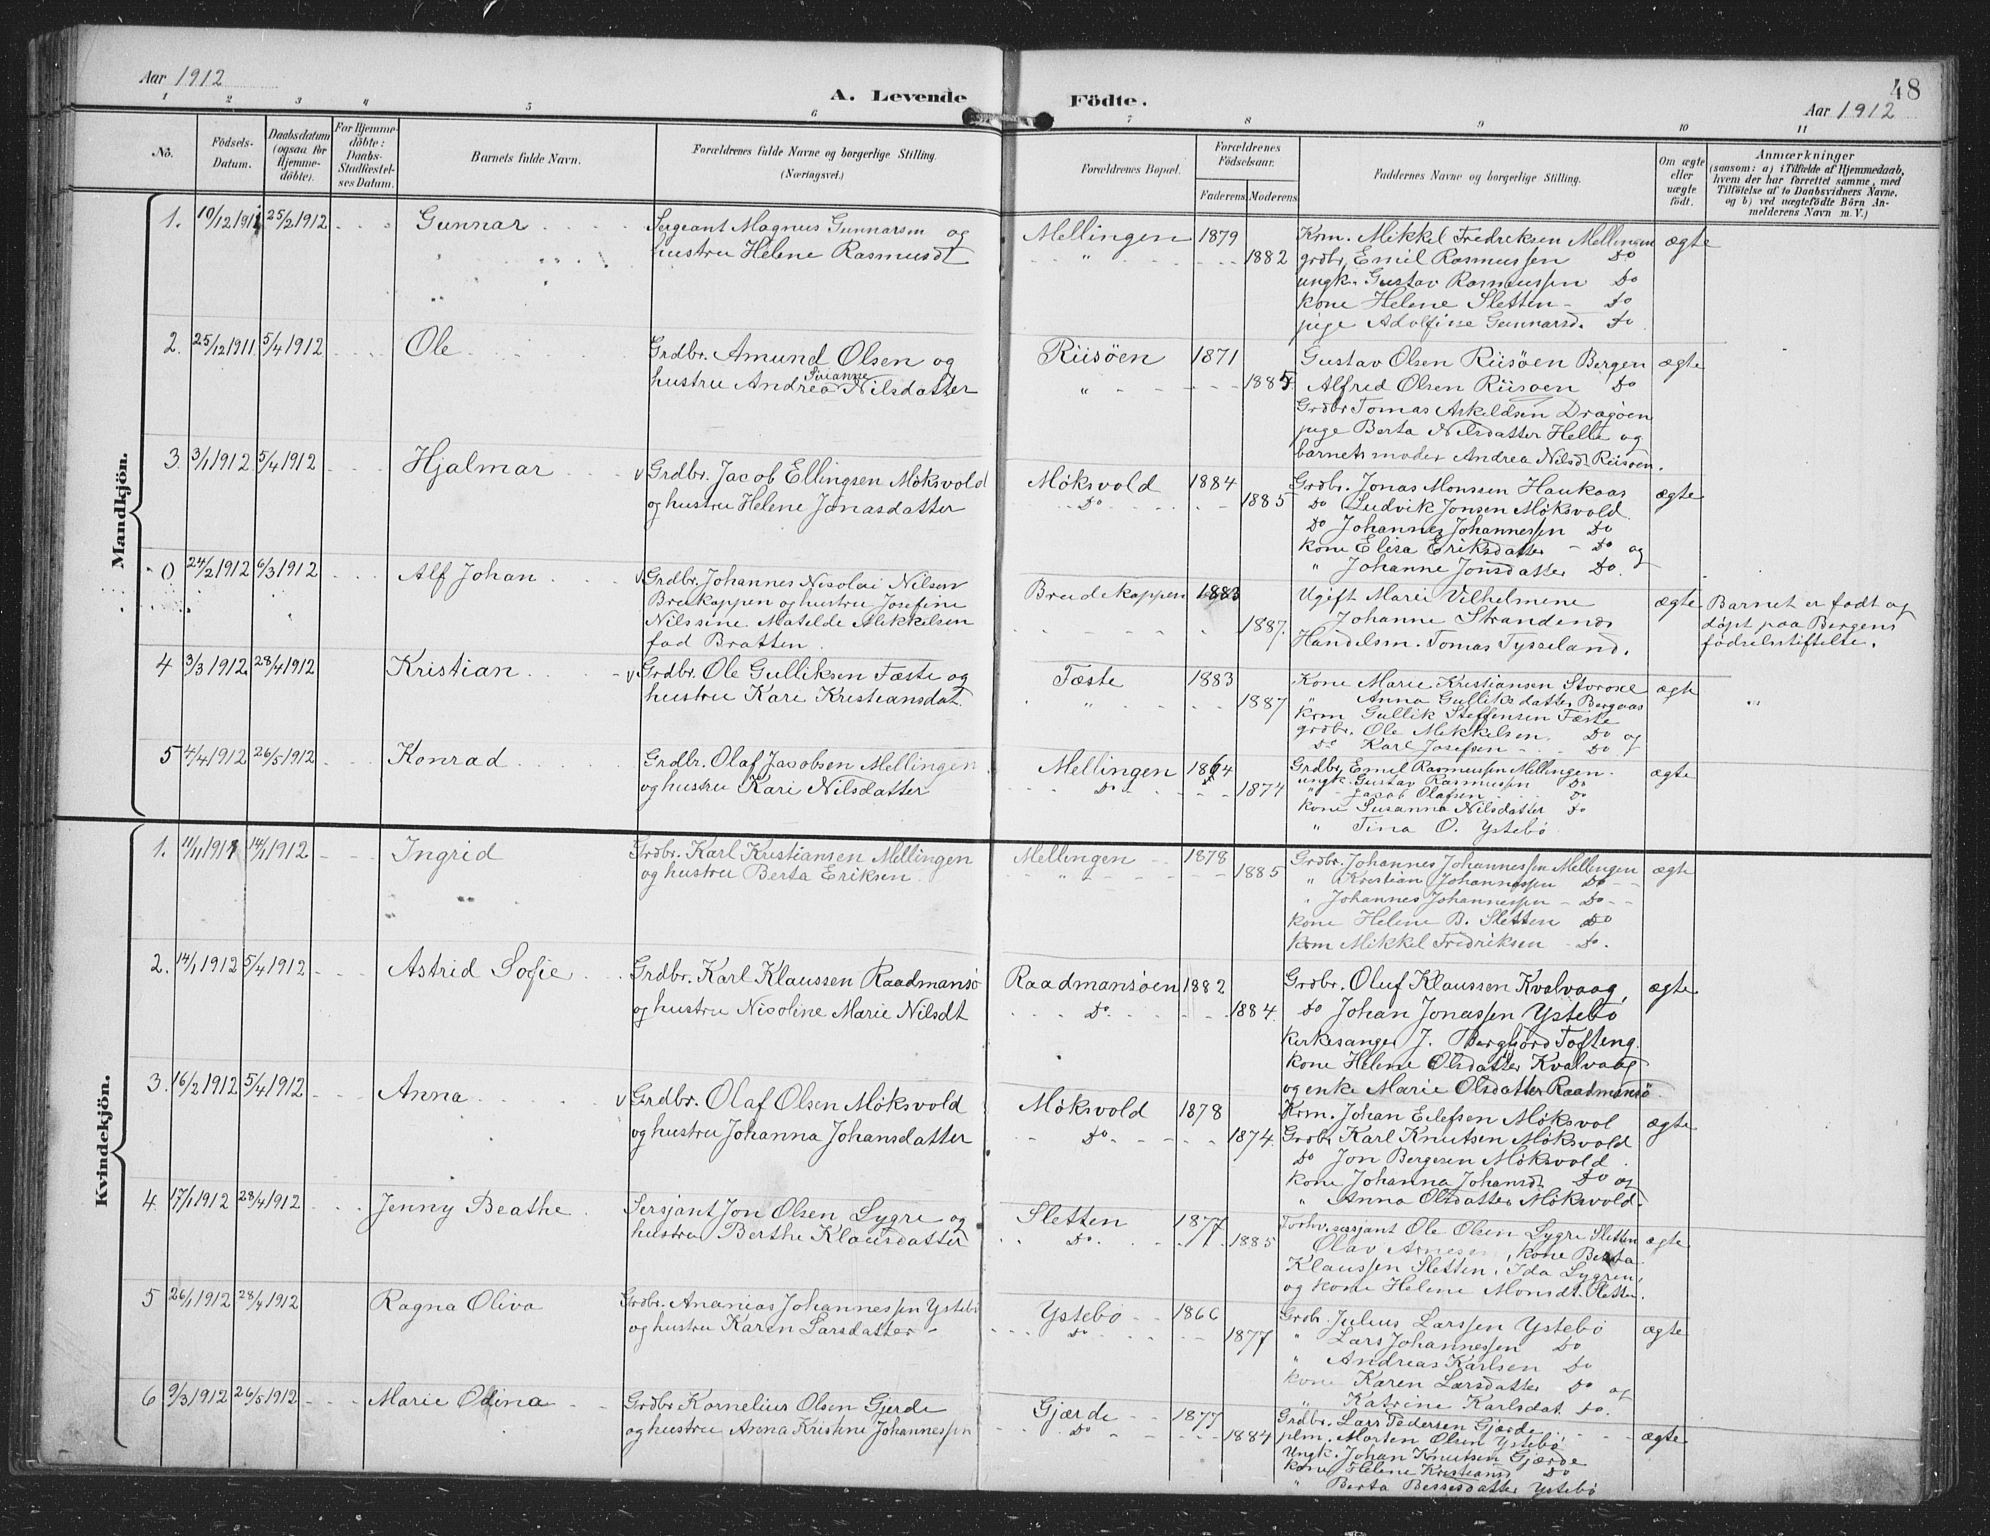 Aar 1912
A. Levende Födte.
48
Aar 1912
1 2 3 4 5 6 7 8 9 10 11
No.
Födsels-
Datum.
Daabsdatum
(ogsaa for
Hjemme-
döbte).
For Hjemme-
döbte:
Daabs-
Stadfæstel-
ses Datum.
Barnets fulde Navn.
Forældrenes fulde Navne og borgerlige Stilling.
(Næringsvei.)
Forældrenes Bopæl.
Forældrenes
Födselsaar.
Faderens. Moderens.
Faddernes Navne og borgerlige Stilling.
Om ægte
eller
uægte
födt.
Anmærkninger
(saasom: a) i Tilfælde af Hjemmedaab,
hvem der har forrettet samme, med
Tilföielse af to Daabsvidners Navne,
og b) ved uægtefödte Börn An-
melderens Navn m. V.)
Mandkjön.
1. 10/12 1911 25/2 1912 Gunnar
Sergeant Magnus Gunnarsen og
hustru Helene Rasmusdt
Mellingen 1879
" 1882
Krm. Mikkel Fredriksen Mellingen ægte
grdbr. Emil Rasmussen Do
ungk. Gustav Rasmussen Do
kone Helene Sletten Do
pige Adolfine Gunnarsd. Do
2. 25/12 1911 5/4 1912 Ole
Grdbr. Amund Olsen og
Sirianne
hustru Andrea Nilsdatter
Riisöen 1871
" 1885
Gustav Olsen Riisöen Bergen ægte
Alfred Olsen Riisöen Do
Grdbr Tomas Askeldsen Dragöen
pige Berta Nilsdatter Helle og
barnets moder Andrea Nilsd. Riisöen.
3. 3/1 1912 5/4 1912 Hjalmar
v Grdbr. Jacob Ellingsen Møksvold
og hustru Helene Jonasdatter
Møksvold 1884
Do 1885
Grdbr. Jonas Monssen Haukaas ægte
Do Ludvik Jonsen Møksvold
Do Johannes Johannessen Do
kone Elisa Eriksdatter - Do og
" Johanne Jonsdatter Do.
0 24/2 1912 6/3 1912 Alf Johan
v Grdbr. Johannes Nicolai Nilsen
Breikappen og hustru Josefine
Nilssine Matilde Mikkelsen
fød Bratten.
Breidekappen 1883
1887.
Ugift Marie Vilhelmene ægte
Johanne Strandenes
Handelsm. Tomas Tysseland.
Barnet er født og
døpt paa Bergens
fødselsstiftelse.
4 3/3 1912 28/4 1912 Kristian
v Grdbr. Ole Gulliksen Tæste og
hustru Kari Kristiansdat.
Tæste 1883
" 1887
Kone Marie Kristiansen Storoxe ægte
" Anna Gulliksdatter Bergaas
Krm Gullik Steffensen Tæste
grdbr. Ole Mikkelsen Do og
Do Karl Josefsen Do
5 4/4 1912 26/5 1912 Konrad
Grdbr. Olaf Jacobsen Mellingen
og hustru Kari Nilsdatter
Mellingen 1864
Do 1874
Grdbr. Emil Rasmussen Mellingen. ægte
ungk. Gustav Rasmussen Do
" Jacob Olafsen Do
kone Susanna Nilsdatter Do
" Tina O. Ystebø
Kvindekjön.
1. 11/11 1911 14/1 1912 Ingrid
Grdbr. Karl Kristiansen Mellingen
og hustru Berta Eriksen.
Mellingen 1878
" 1885
Grdbr. Johannes Johannessen Mellingen ægte
" Kristian Johannessen Do
" Johannes Johannessen Do
kone Helene B. Sletten Do
krm Mikkel Fredriksen Do.
2. 14/1 1912 5/4 1912 Astrid Sofie
Grdbr. Karl Klaussen Raadmansö
og hustru Nicoline Marie Nilsdt
Raadmansøen 1882
Do 1884.
Grdbr. Oluf Klaussen Kvalvaag, ægte
Do Johan Jonassen Ystebö
kirkesanger J. Bergfjord Tofteng
kone Helene Olsdatter Kvalvaag
og enke Marie Olsdatter Raadmansö.
3. 16/2 1912 5/4 1912 Anna
v Grdbr. Olaf Olsen Møksvold
og hustru Johanna Johansdatter
Møksvold 1878
Do 1874.
Krm. Johan Eilefsen Møksvol ægte
Grdbr Karl Knutsen Møksvold
Do Jon Bergesen Møksvold.
kone Johanna Johansd. Do og
" Anna Olsdatter Møksvold.
4. 17/1 1912 28/4 1912 Jenny Beathe
Sersjant Jon Olsen Lygre og
hustru Berthe Klausdatter
Sletten 1877
Do 1885
Forhv. sersjant Ole Olsen Lygre Sletten ægte
Olav Arnesen, kone Berta
Klaussen Sletten, Ida Lygren,
og kone Helene Monsdt. Sletten.
5 26/1 1912 28/4 1912 Ragna Oliva
Grdbr. Ananias Johannessen Ystebø
og hustru Karen Larsdatter
Ystebø 1866
Do 1877
Grdbr. Julius Larssen Ystebø ægte
" Lars Johannessen Do
" Andreas Karlsen Do
kone Karen Larsdatter Do og
" Katrine Karlsdat. Do.
6 9/3 1912 26/5 1912 Marie Odina
Grdbr Kornelius Olsen Gjerde
og hustru Anna Kristine Johannessen
Gjærde 1877
Do 1884
Grdbr. Lars Pedersen Gjærde ægte
plm. Morten Olsen Ystebø
Ungk. Johan Knutsen Gjærde
kone Helene Kristiansd Do
" Berta Bessesdatter Ystebø